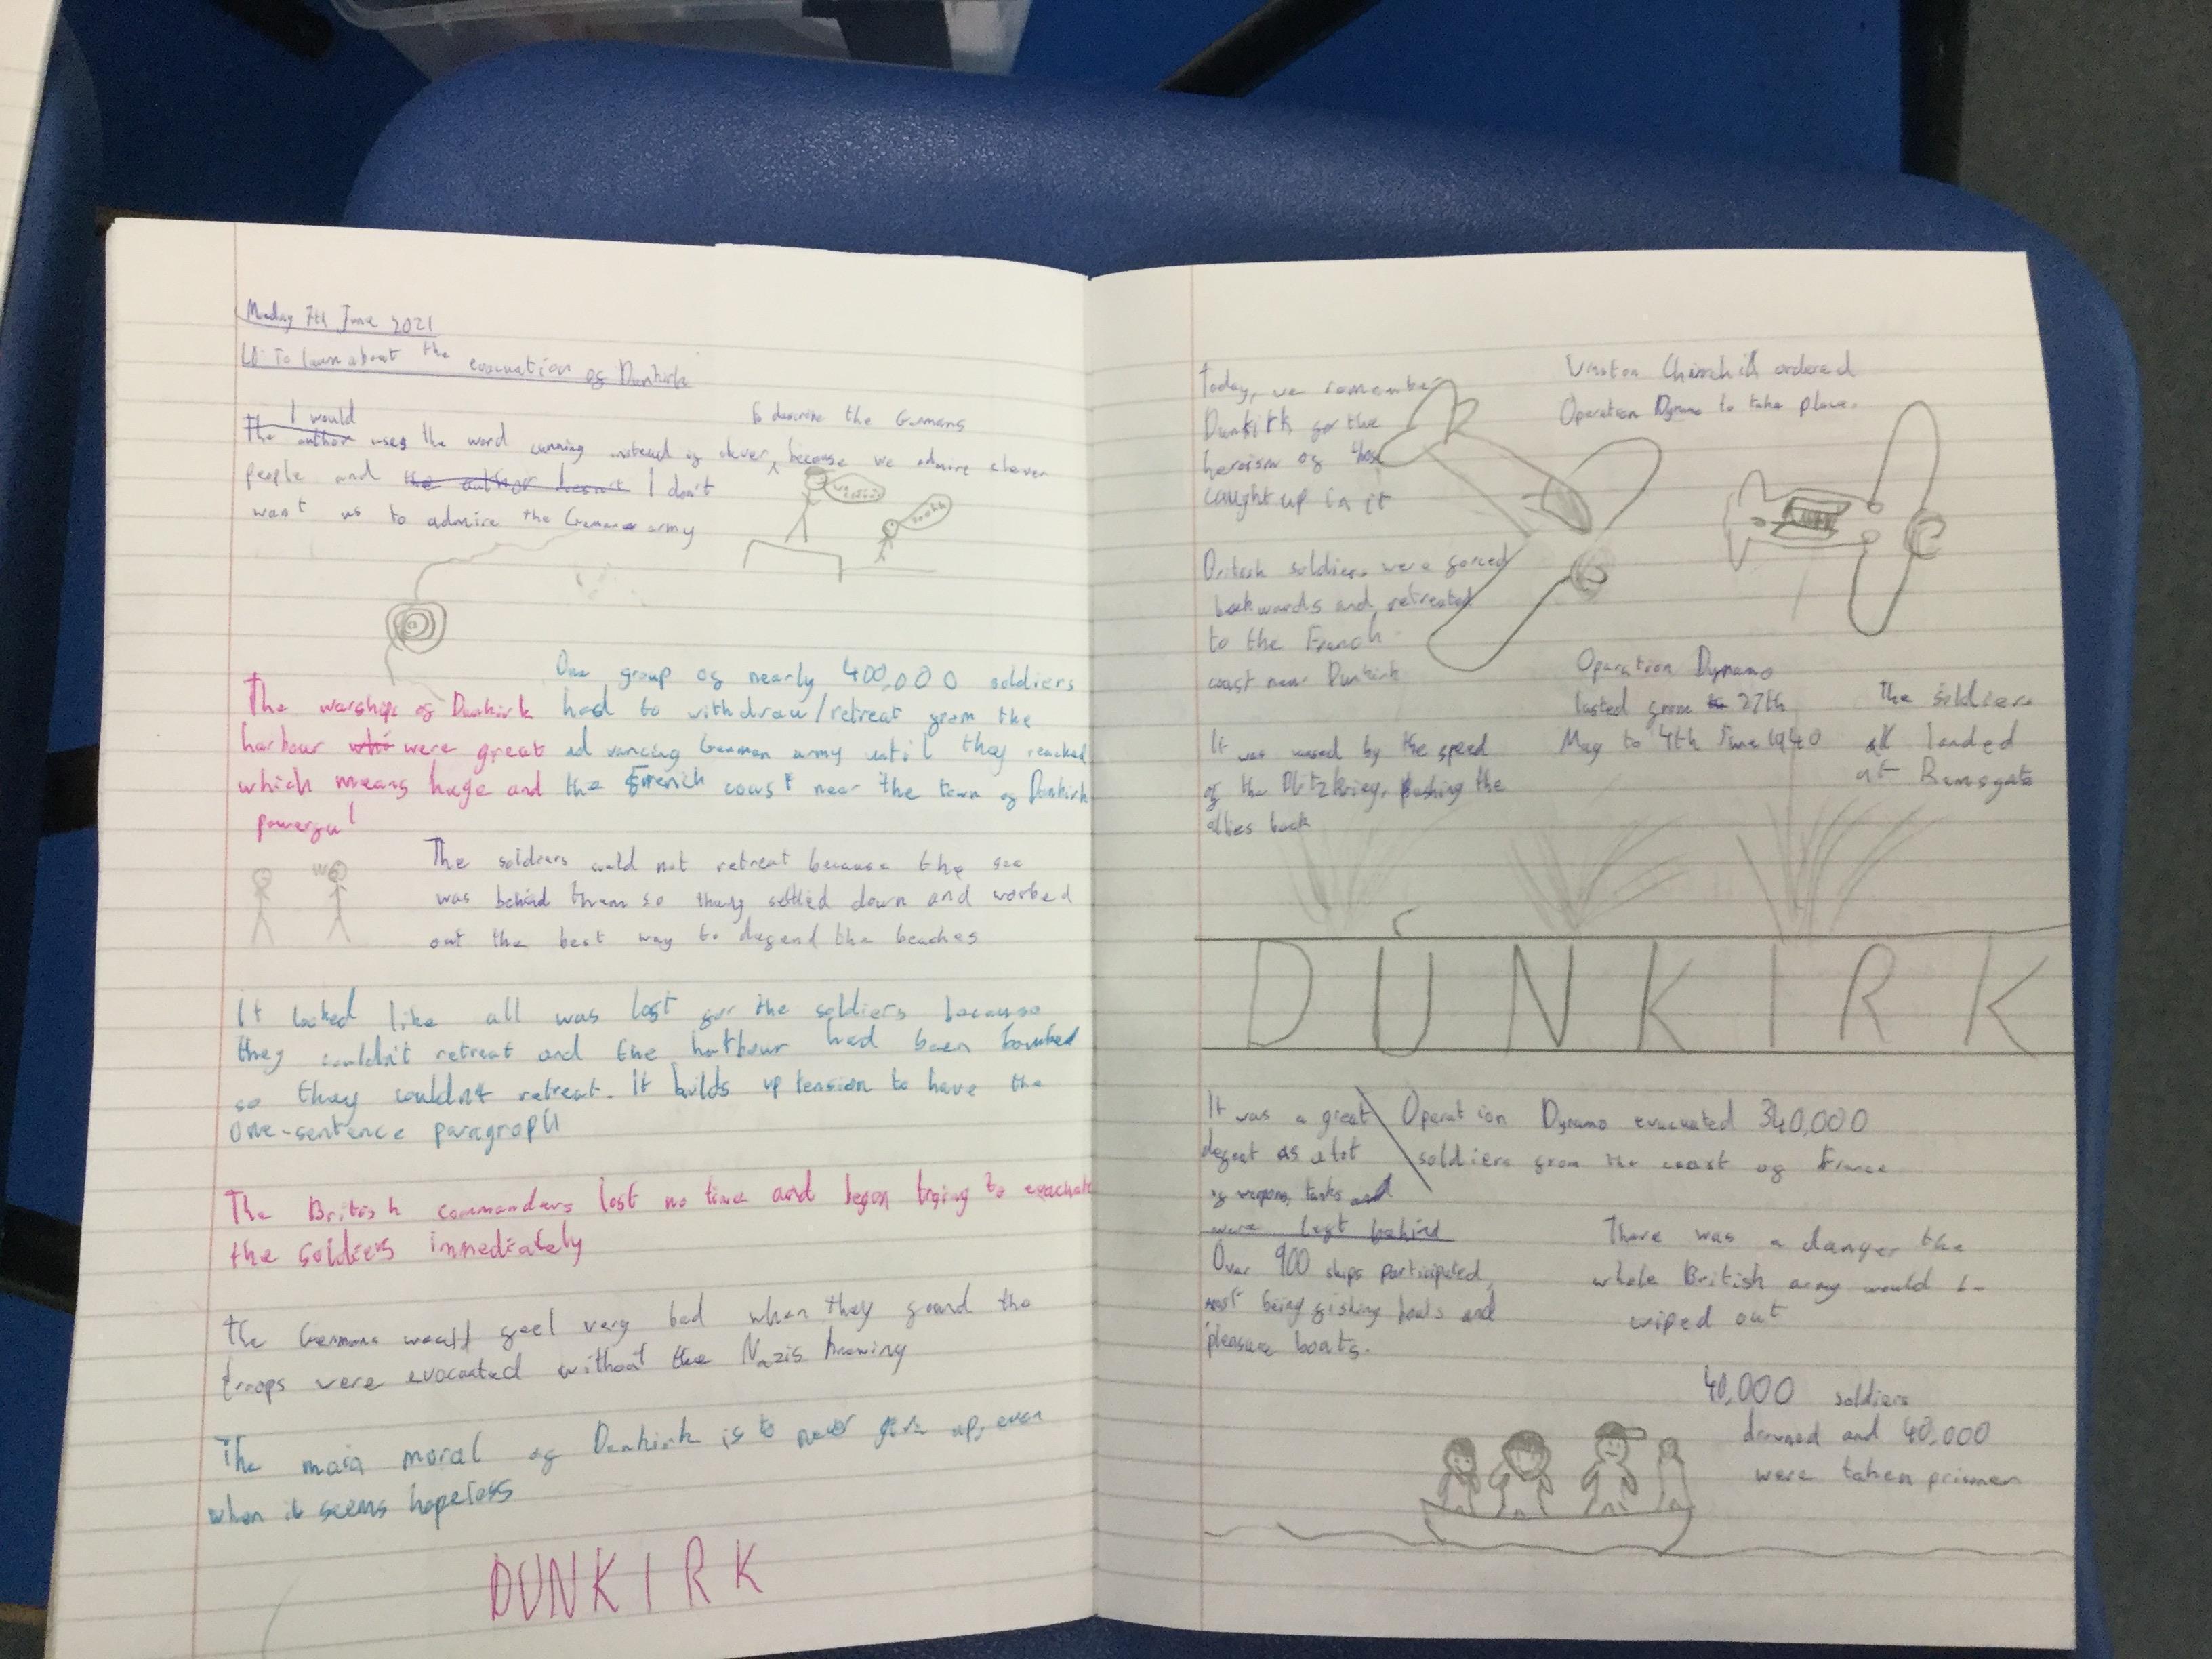 Monday 7th June 2021
LO: To learn about the evacuation of Dunkirk
I would
The author uses the word cunning instead of clever, because we admire clever
to describe the Germans
people and the author doesn't I don't
want us to admire the German army
One group of nearly 400,000 soldiers
had to withdraw/retreat from the
advancing German army until they reached
the French coast near the town of Dunkirk
The warships of Dunkirk
harbour who were great
which means huge and
powerful
The soldiers could not retreat because the sea
was behind them so they settled down and worked
out the best way to defend the beaches
It looked like all was lost for the soldiers because
they couldn't retreat and the harbour had been bombed
so they couldn't retreat. It builds up tension to have the
one-sentence paragraph
The British commanders lost no time and began trying to evacuate
the soldiers immediately
The Germans would feel very bad when they found the
troops were evacuated without the Nazis knowing
The main moral of Dunkirk is to never give up, even
when it seems hopeless
DUNKIRK
Today, we remember
Dunkirk for the
heroism of those
caught up in it
British soldiers were forced
backwards and retreated
to the French
coast near Dunkirk
It was caused by the speed
of the Blitzkrieg, pushing the
allies back
Winston Churchill ordered
Operation Dynamo to take place.
Operation Dynamo
lasted from to 27th
May to 4th June 1940
The soldiers
all landed
at Ramsgate
DUNKIRK
It was a great
defeat as a lot
of weapons, tanks and
were left behind
Operation Dynamo evacuated 340,000
soldiers from the coast of France
Over 900 ships participated,
most being fishing boats and
pleasure boats.
There was a danger the
whole British army would be
wiped out
40,000 soldiers
drowned and 40,000
were taken prisoner